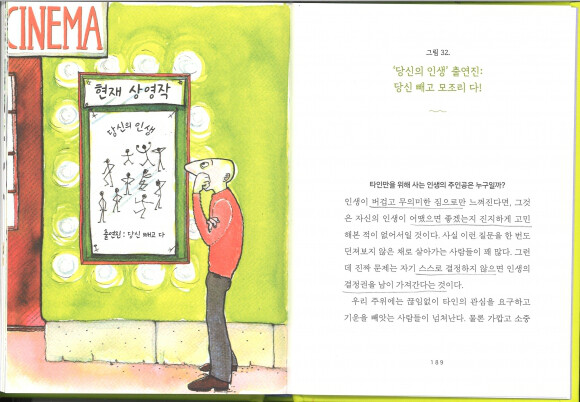 CINEMA
현재 상영작
당신의 인생
출연진: 당신 빼고 다
그림 32.
'당신의 인생' 출연진:
당신 빼고 모조리 다!
타인만을 위해 사는 인생의 주인공은 누구일까?
인생이 버겁고 무의미한 짐으로만 느껴진다면, 그것
은 자신의 인생이 어땠으면 좋겠는지 진지하게 고민
해본 적이 없어서일 것이다. 사실 이런 질문을 한 번도
던져보지 않은 채로 살아가는 사람들이 꽤 많다. 그런
데 진짜 문제는 자기 스스로 결정하지 않으면 인생의
결정권을 남이 가져간다는 것이다.
우리 주위에는 끊임없이 타인의 관심을 요구하고
기운을 빼앗는 사람들이 넘쳐난다. 물론 가깝고 소중
189